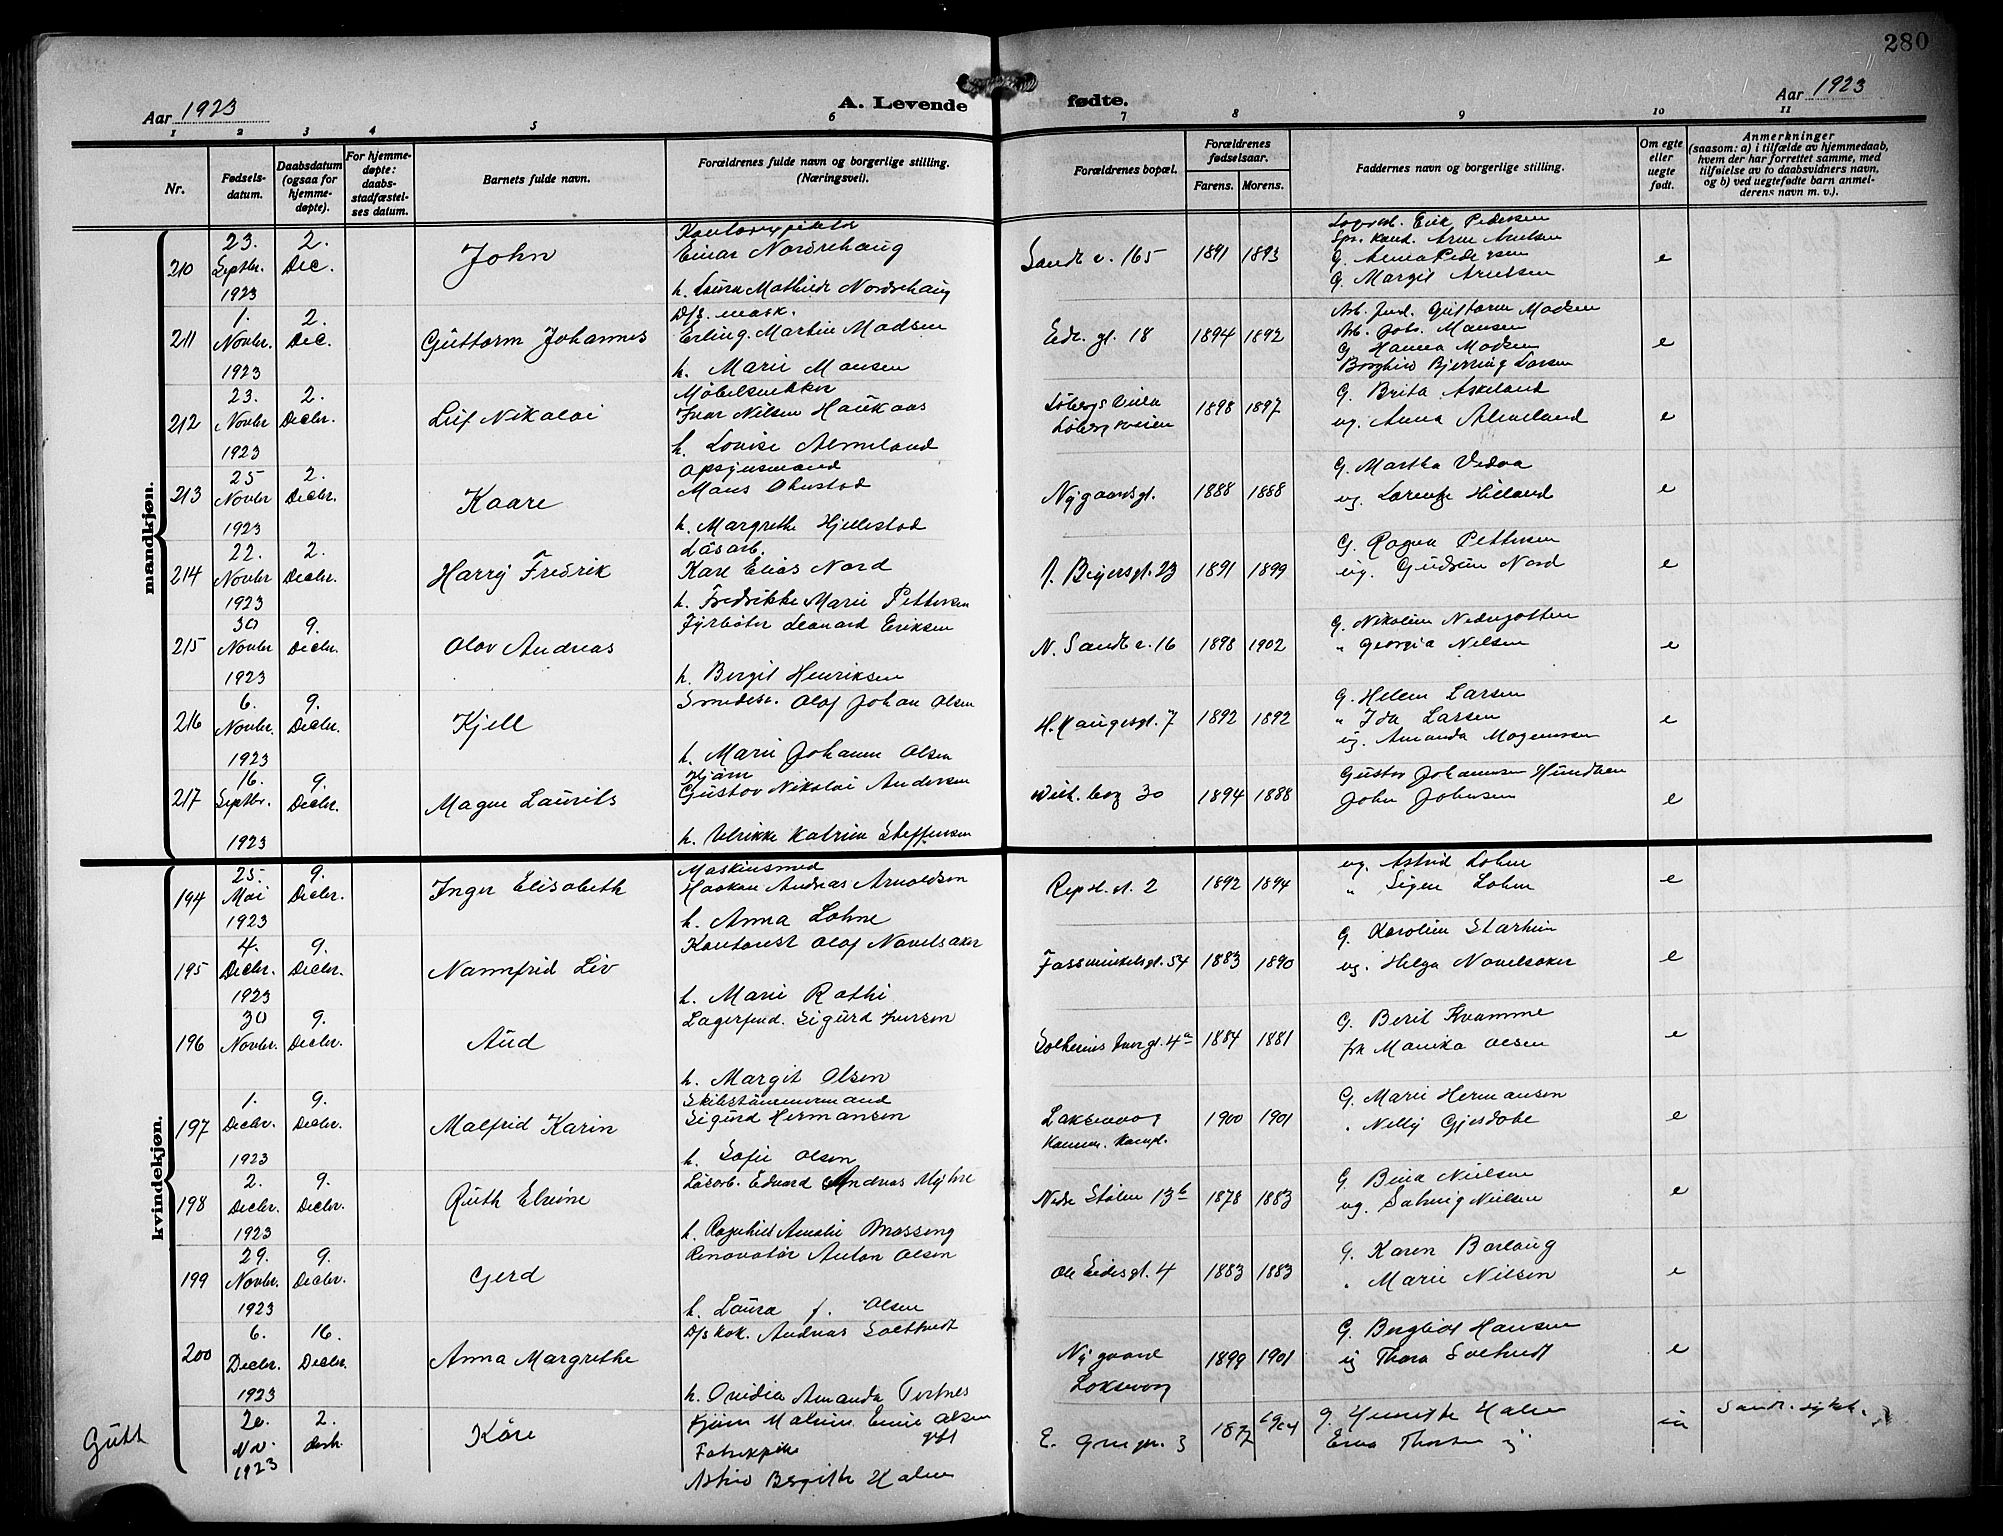 280
Aar 1923
A. Levende
fødte.
Aar 1923
1 2 3 4 5 6 7 8 9 10 11
Nr.
Fødsels-
datum.
Daabsdatum
(ogsaa for
hjemme-
døpte).
For hjemme-
døpte:
daabs-
stadfæstel-
ses datum.
Barnets fulde navn.
Forældrenes fulde navn og borgerlige stilling.
(Næringsvei).
Forældrenes bopæl.
Forældrenes
fødselsaar.
Farens. Morens.
Faddernes navn og borgerlige stilling.
Om egte
eller
uegte
født.
Anmerkninger
(saasom: a) i tilfælde av hjemmedaab,
hvem der har forrettet samme, med
tilføielse av to daabsvidners navn,
og b) ved uegtefødte barn anmel-
derens navn m. v.).
mandkjøn.
210
23.
Septbr.
1923
2.
Dec.
John
Einar Nordrehaug
h. Laura Mathilde Nordrehaug
Sandv. 165
1891 1893
Erik Pedersen
Arne Arnesen
G. Anna Pedersen
G. Margit Arnesen
e
211
1.
Novbr.
1923
2.
Dec.
Guttorm Johannes
D/s. mask.
Erling Martin Madsen
h. Marie Monsen
18
1894 1892
Guttorm Madsen
Arb. Johs. Monsen
G. Hanna Madsen
Borghild Bjerring Larsen
e
212
23.
Novbr
1923
2.
Decbr.
Leif Nikolai
Møbelsnekker
Ivar Nilsen Haukaas
h. Lovise Almeland
Løbergsveien
1898 1897
G. Brita Askeland
ug. Anna Almeland
e
213
25
Novbr
1923
2.
Decbr.
Kaare
Opsynsmand
Mons
h. Margrethe Hjellestad
Nygaardsgt.
1888 1888
G. Martha Vedaa
ug. Lorentze Hilland
e
214
22.
Novbr
1923
2.
Decbr.
Harry Fredrik
Løsarb.
Karl Elias Nord
h. Fredrikke Marie Pettersen
J. Beyersgt. 23
1891 1899
G. Ragna Pettersen
ug. Gudrun Nord
e
215
30
Novbr
1923
9.
Decbr.
Olav Andreas
Fyrbøter Leonard Eriksen
h. Bergit Henriksen
N. Sandv. 16
1898 1902
G. Nikoline
" Georgia Nilsen
e
216
6.
Novbr.
1923
9.
Decbr.
Kjell
Smedesv. Olaf Johan Olsen
h. Marie Johanne Olsen
H. Haugesgt. 7
1892 1892
G. Helene Larsen
" Ida Larsen
ug. Amanda Magnussen
e
217
16.
Septbr.
1923
9.
Decbr.
Magne Laurits
Gustav Nikolai Andersen
h. Ulrikke Katrine Steffensen
30
1894 1888
Gustav Johannesen Hundven
John Johnsen
e
kvindekjøn.
194
25.
Mai
1923
9.
Decbr.
Inger Elisabeth
Maskinsmed
Haakon Andreas Arnoldsen
h. Anna Lohne
Repsl. 2
1892 1894
ug. Astrid Lohne
" Signe Lohne
e
195
4.
Decbr.
1923
9.
Decbr.
Nannfrid Liv
Kontorist Olaf Navelsaker
h. Marie Rathe
Fosswinckelsgt. 54
1883 1890
G. Karoline Starheim
ug. Helga Navelsaker
e
196
30
Novbr.
1923
9.
Decbr.
Aud
Lagerfmd. Sigurd Iversen
h. Margit Olsen
4a
1884 1881
G. Berit Kvamme
frk Marika Olsen
e
197
1.
Decbr.
1923
9.
Decbr.
Malfrid Karin
Sigurd Hermansen
h. Sofie Olsen
Laksevaag
1900 1901
G. Marie Hermansen
" Nelly Gjesdahl
e
198
2.
Decbr.
1923
9.
Decbr.
Ruth Elvine
Løsarb. Edvard Andreas Myhre
h. Ragnhild Amalie Mossing
Nedre Stølen 13b
1878 1883
G. Bina Nielsen
ug. Solveig Nielsen
e
199
29.
Novbr.
1923
9.
Decbr.
Gerd
Renovatør Anton Olsen
h. Laura J. Olsen
Ole Eidesgt. 4
1883 1883
G. Karen Borlaug
" Marie Nilsen
e
200
6.
Decbr.
1923
16.
Decbr.
Anna Margrethe
D/s kok. Andreas Soltvedt
h. Ovidia Amanda Tertnes
Nygaard
Laksevaag
1899 1901
G. Bergliot Hansen
ug Thora Soltvedt
e
Gutt
20.
Nv.
1923
2.
Desbr.
Kåre
Olsen
Fabrikkpike
Astrid Bergitte
3
1877 1904
G.